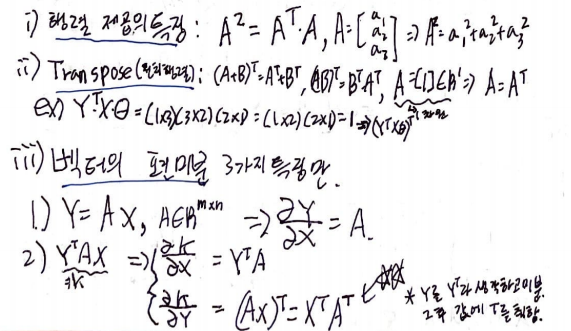 i) 행렬 제곱의 특징 : A² = Aᵀ·A, A = [a₁ a₂ a₃] ⇒ A² = a₁² + a₂² + a₃²
ii) Transpose( ) : (A+B)ᵀ = Aᵀ+Bᵀ, (AB)ᵀ = BᵀAᵀ, A = [1] ∈ R¹ ⇒ A = Aᵀ
ex) Yᵀ·X·θ = (1x3)(3x2)(2x1) = (1x2)(2x1) = 1 ⇒ (YᵀXθ)ᵀ
iii) 벡터의 편미분 3가지 특징만.
1) Y = AX, A∈Rᵐˣⁿ ⇒ ∂Y/∂X = A.
2) YᵀAX ⇒ ∂K/∂X = YᵀA
=K
∂K/∂Y = (AX)ᵀ = XᵀAᵀ
* Y를 Yᵀ라 생각하고 미분.
그 후 값에 T를 취함.